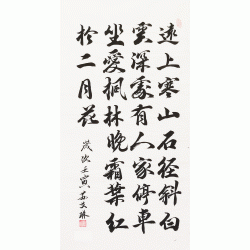 遠上寒山石徑斜白
雲深處有人家停車
坐愛楓林晚霜葉紅
於二月花
歲次壬寅